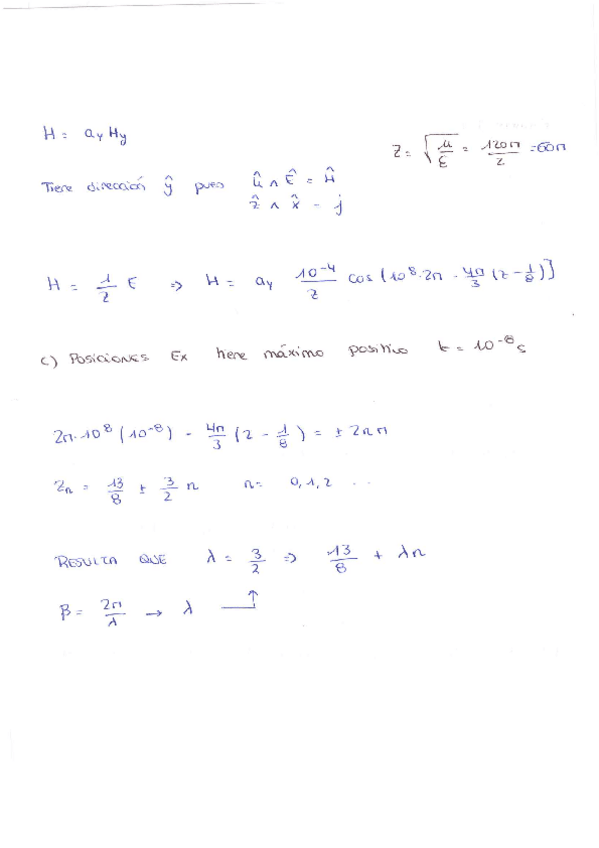 H = a_y H_y
Z = √(μ/ε) = 120π/2 = 60π
Tiene dirección ŷ pues û ∧ Ê = Ĥ
ẑ ∧ x̂ - j
H = 1/Z E => H = a_y 10^-4/Z cos (10^8·2π - 4π/3 (z - 1/8)]
c) POSICIONES Ex tiene máximo positivo t = 10^-8 s
2π·10^8 (10^-8) - 4π/3 (z - 1/8) = ± 2πn
Z_n = 13/8 ± 3/2 n n = 0, 1, 2 ...
RESULTA QUE λ = 3/2 => 13/8 + λn
β = 2π/λ → λ